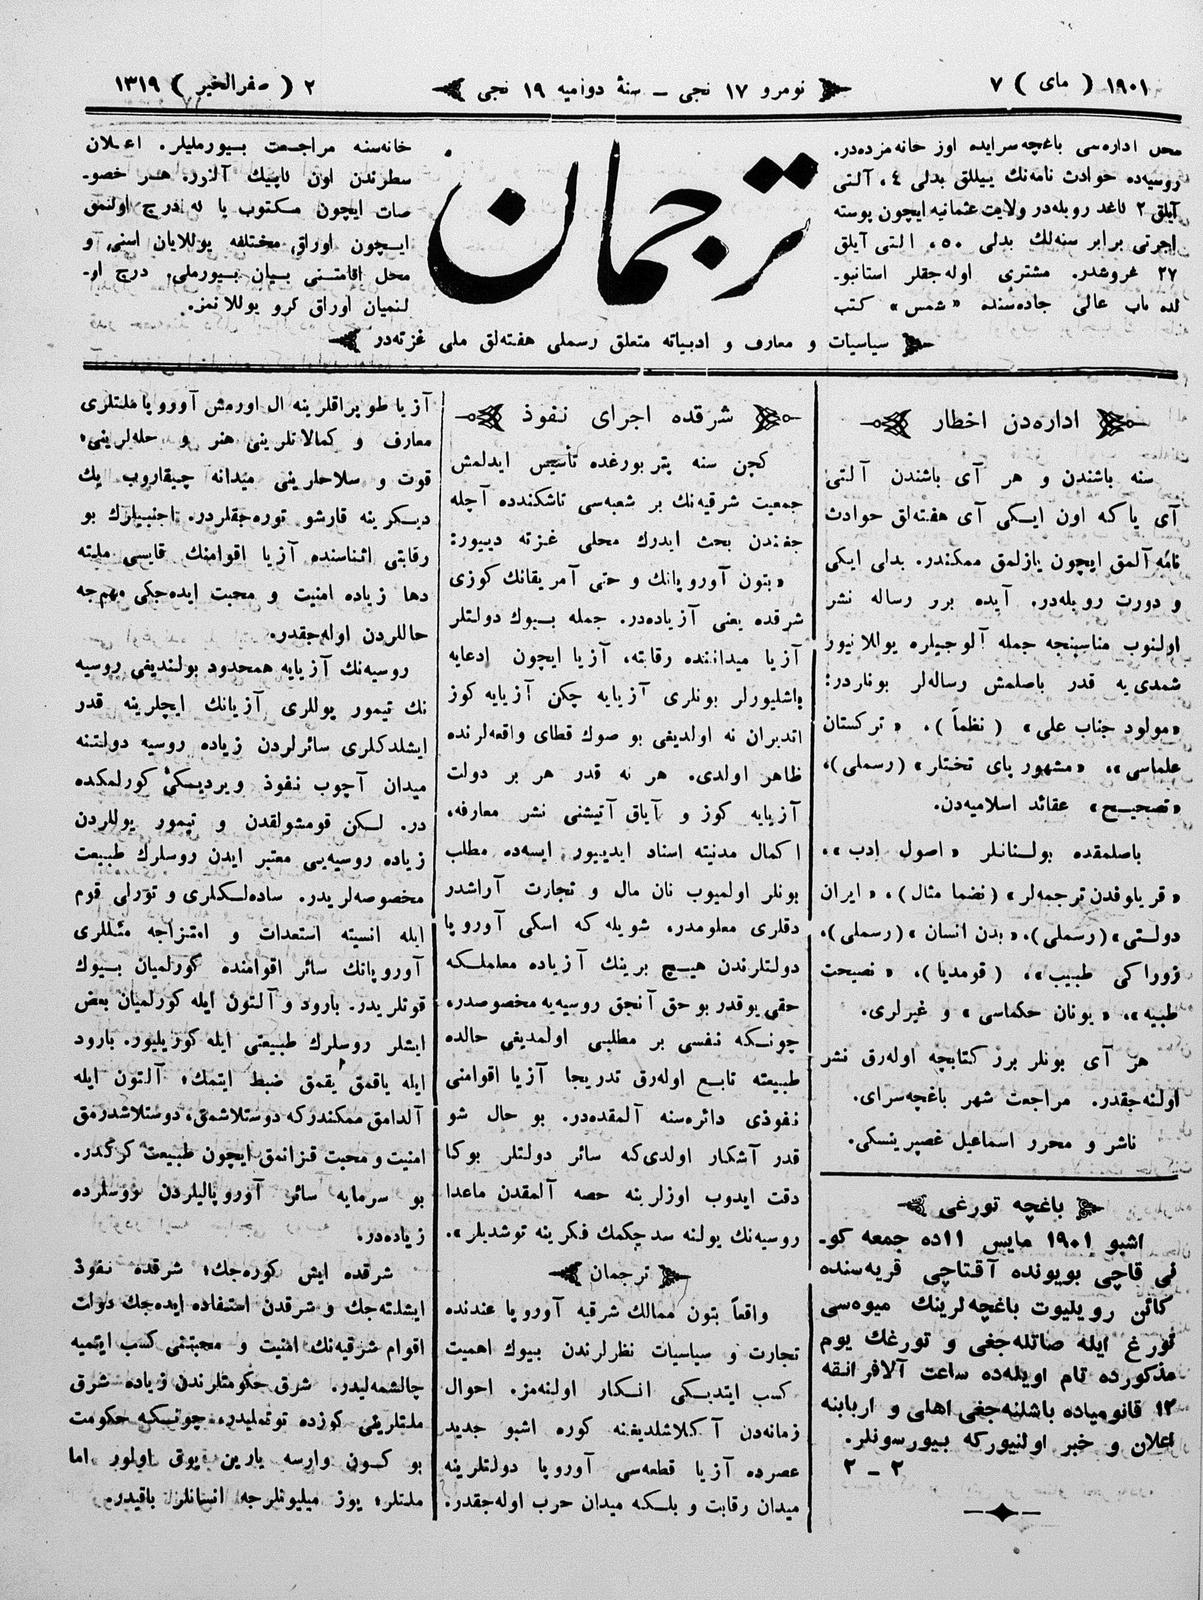 ١٩٠١ ( مای ) ٧
نومرو ١٧ نجی ـ سنۀ دوامیه ١٩ نجی
٢ ( صفرالخیر ) ١٣١٩
محل اداره‌سی باغچه‌سرایده اوز خانه مزده‌در.
روسیه‌ده حوادث نامه‌نك ییللق بدلی ٤، آلتی
آیلق ٢ كاغد روبله‌در ولایت عثمانیه ایچون پوسته
اجرتی برابر سنه‌لك بدلی ٥٠، التی آیلق
٢٧ غروشدر. مشتری اوله‌جقلر استانبو-
لده باب عالی جاده‌سنده «شمس» كتب
ترجمان
خانه‌سنه مراجعت بیورملیلر. اعلان
سطرندن اون كاپیك آلنرر، هر خصو-
صات ایچون مكتوب یا كه درج اولنمق
ایچون اوراق مختلفه یوللایان اسمی و
محل اقامتنی بیان بیورملی، درج او-
لنمیان اوراق كرو یوللانمز.
سیاسیات و معارف و ادبیاته متعلق رسملی هفته‌لق ملی غزته‌در
اداره‌دن اخطار
سنه باشندن و هر آی باشندن آلتی
آی یا كه اون ایكی آی هفته‌لق حوادث
نامه آلمق ایچون یازلمق ممكندر. بدلی ایكی
و دورت روبله‌در. آیده برر رساله نشر
اولنوب مناسبنجه جمله آلوجیلره یوللانیور
شمدی‌یه قدر باصلمش رساله‌لر بونلردر:
«مولود جناب علی» (نظماً)، «تركستان
علماسی»، «مشهور پای تختلر» (رسملی)،
«تصحیح» عقائد اسلامیه‌دن.
باصلمقده بولنانلر «اصول ادب»،
«قریلوفدن ترجمه‌لر» (نضما مثال)، «ایران
دولتی» (رسملی)، «بدن انسان» (رسملی)،
زوراكی طبیب»، (قومدیا)، «نصیحت
طبیه»، «یونان حكماسی» و غیرلری.
هر آی بونلر برر كتابچه اوله‌رق نشر
اولنه‌جقدر. مراجعت شهر باغچه‌سرای.
ناشر و محرر اسماعیل غصپرینسكی.
باغچه تورغی
اشبو ١٩٠١ مایس ١١ده جمعه كو-
نی قاچی بویونده آقتاچی قریه‌سنده
كائن رویلیوت باغچه‌لرینك میوه‌سی
تورغ ایله صاتله‌جغی و تورغك یوم
مذكورده تام اویله‌ده ساعت آلافرانقه
١٢ قانومیاده باشلنه‌جغی اهلی و اربابنه
اعلان و خبر اولنیوركه بیورسونلر.
٢ ـ ٢
شرقده اجرای نفوذ
كچن سنه پتربورغده تأسیس ایدلمش
جمعیت شرقیه‌نك بر شعبه‌سی تاشكندده آچله
جغندن بحث ایدرك محلی غزته دییور:
«بتون آوروپانك و حتی آمریقانك كوزی
شرقده یعنی آزیاده‌در. جمله بیوك دولتلر
آزیا میداننده رقابته، آزیا ایچون ادعایه
باشلیورلر بونلری آزیایه چكن آزیایه كوز
اتدبران نه اولدیغی بو صوك قطای واقعه‌لرنده
ظاهر اولدی. هر نه قدر هر بر دولت
آزیایه كوز و آیاق آتیشنی نشر معارفه،
اكمال مدنیته اسناد ایدییور ایسه‌ده مطلب
بونلر اولمیوب نان مال و تجارت آراشدر
دقلری معلومدر، شویله كه اسكی آوروپا
دولتلرندن هیچ برینك آزیاده معاملكه
حقی یوقدر بو حق آنجق روسیه‌یه مخصوصدر،
چونكه نفسی بر مطلبی اولمدیغی حالده
طبیعته تابع اوله‌رق تدریجا آزیا اقوامنی
نفوذی دائره‌سنه آلمقده‌در. بو حال شو
قدر آشكار اولدی‌كه سائر دولتلر بوكا
دقت ایدوب اوزلرینه حصه آلمقدن ماعدا
روسیه‌نك یولنه سد چكمك فكرینه توشدیلر».
ترجمان
واقعاً بتون ممالك شرقیه آوروپا عندنده
تجارت و سیاسیات نظرلرندن بیوك اهمیت
كسب ایتدیكی انكار اولنه‌مز. احوال
زمانه‌دن آكلاشلدیغنه كوره اشبو جدید
عصرده آزیا قطعه‌سی آوروپا دولتلرینه
میدان رقابت و بلكه میدان حرب اوله‌جقدر.
آزیا طوپراقلرینه ال اورمش آوروپا ملتلری
معارف و كمالاتلرینی هنر و حله‌لرینی،
قوت و سلاحلرینی میدانه چیقاروب یك
دیكرینه قارشو توره‌جقلردر. اجنبیلرك بو
رقابتی اثناسنده آزیا اقوامنك قایسی ملیته
دها زیاده امنیت و محبت ایده‌جكی مهم‌جه
حاللردن اوله‌جقدر.
روسیه‌نك آزیایه همحدود بولندیغی روسیه
نك تیمور یوللری آزیانك ایچلرینه قدر
ایشلدكلری سائرلردن زیاده روسیه دولتنه
میدان آچوب نفوذ ویردیمكی كورلمكده
در. لكن قومشولقدن و تیمور یوللردن
زیاده روسیه‌یی معتبر ایدن روسلرك طبیعت
مخصوصه‌لریدر. ساده‌لكلری و تورلی قوم
ایله انسیته استعدات و امتزاجه مثللری
آوروپانك سائر اقوامنده كورلمیان بیوك
قوتلریدر. بارود و آلتون ایله كورلمیان بعض
ایشلر روسلرك طبیعتی ایله كوزیلیور. بارود
ایله یاقمق یقمق ضبط ایتمك؛ آلتون ایله
آلدامق ممكندركه دوستلاشمق، دوستلاشدرمق
امنیت و محبت قزانمق ایچون طبیعت كركدر.
بو سرمایه سائر آوروپالیلردن روسلرده
زیاده‌در.
شرقده ایش كوره‌جك؛ شرقده نفوذ
ایشلته‌جك و شرقدن استفاده ایده‌جك دولت
اقوام شرقیه‌نك امنیت و محبتنی كسب ایتمیه
چالشمه‌لیدر. شرق حكومتلرندن زیاده شرق
ملتلرینی كوزده توتملیدر، چونكه حكومت
بو كون وارسه یارین یوق اولور اما
ملتلر؛ یوز میلیونلرجه انسانلر باقیدر.